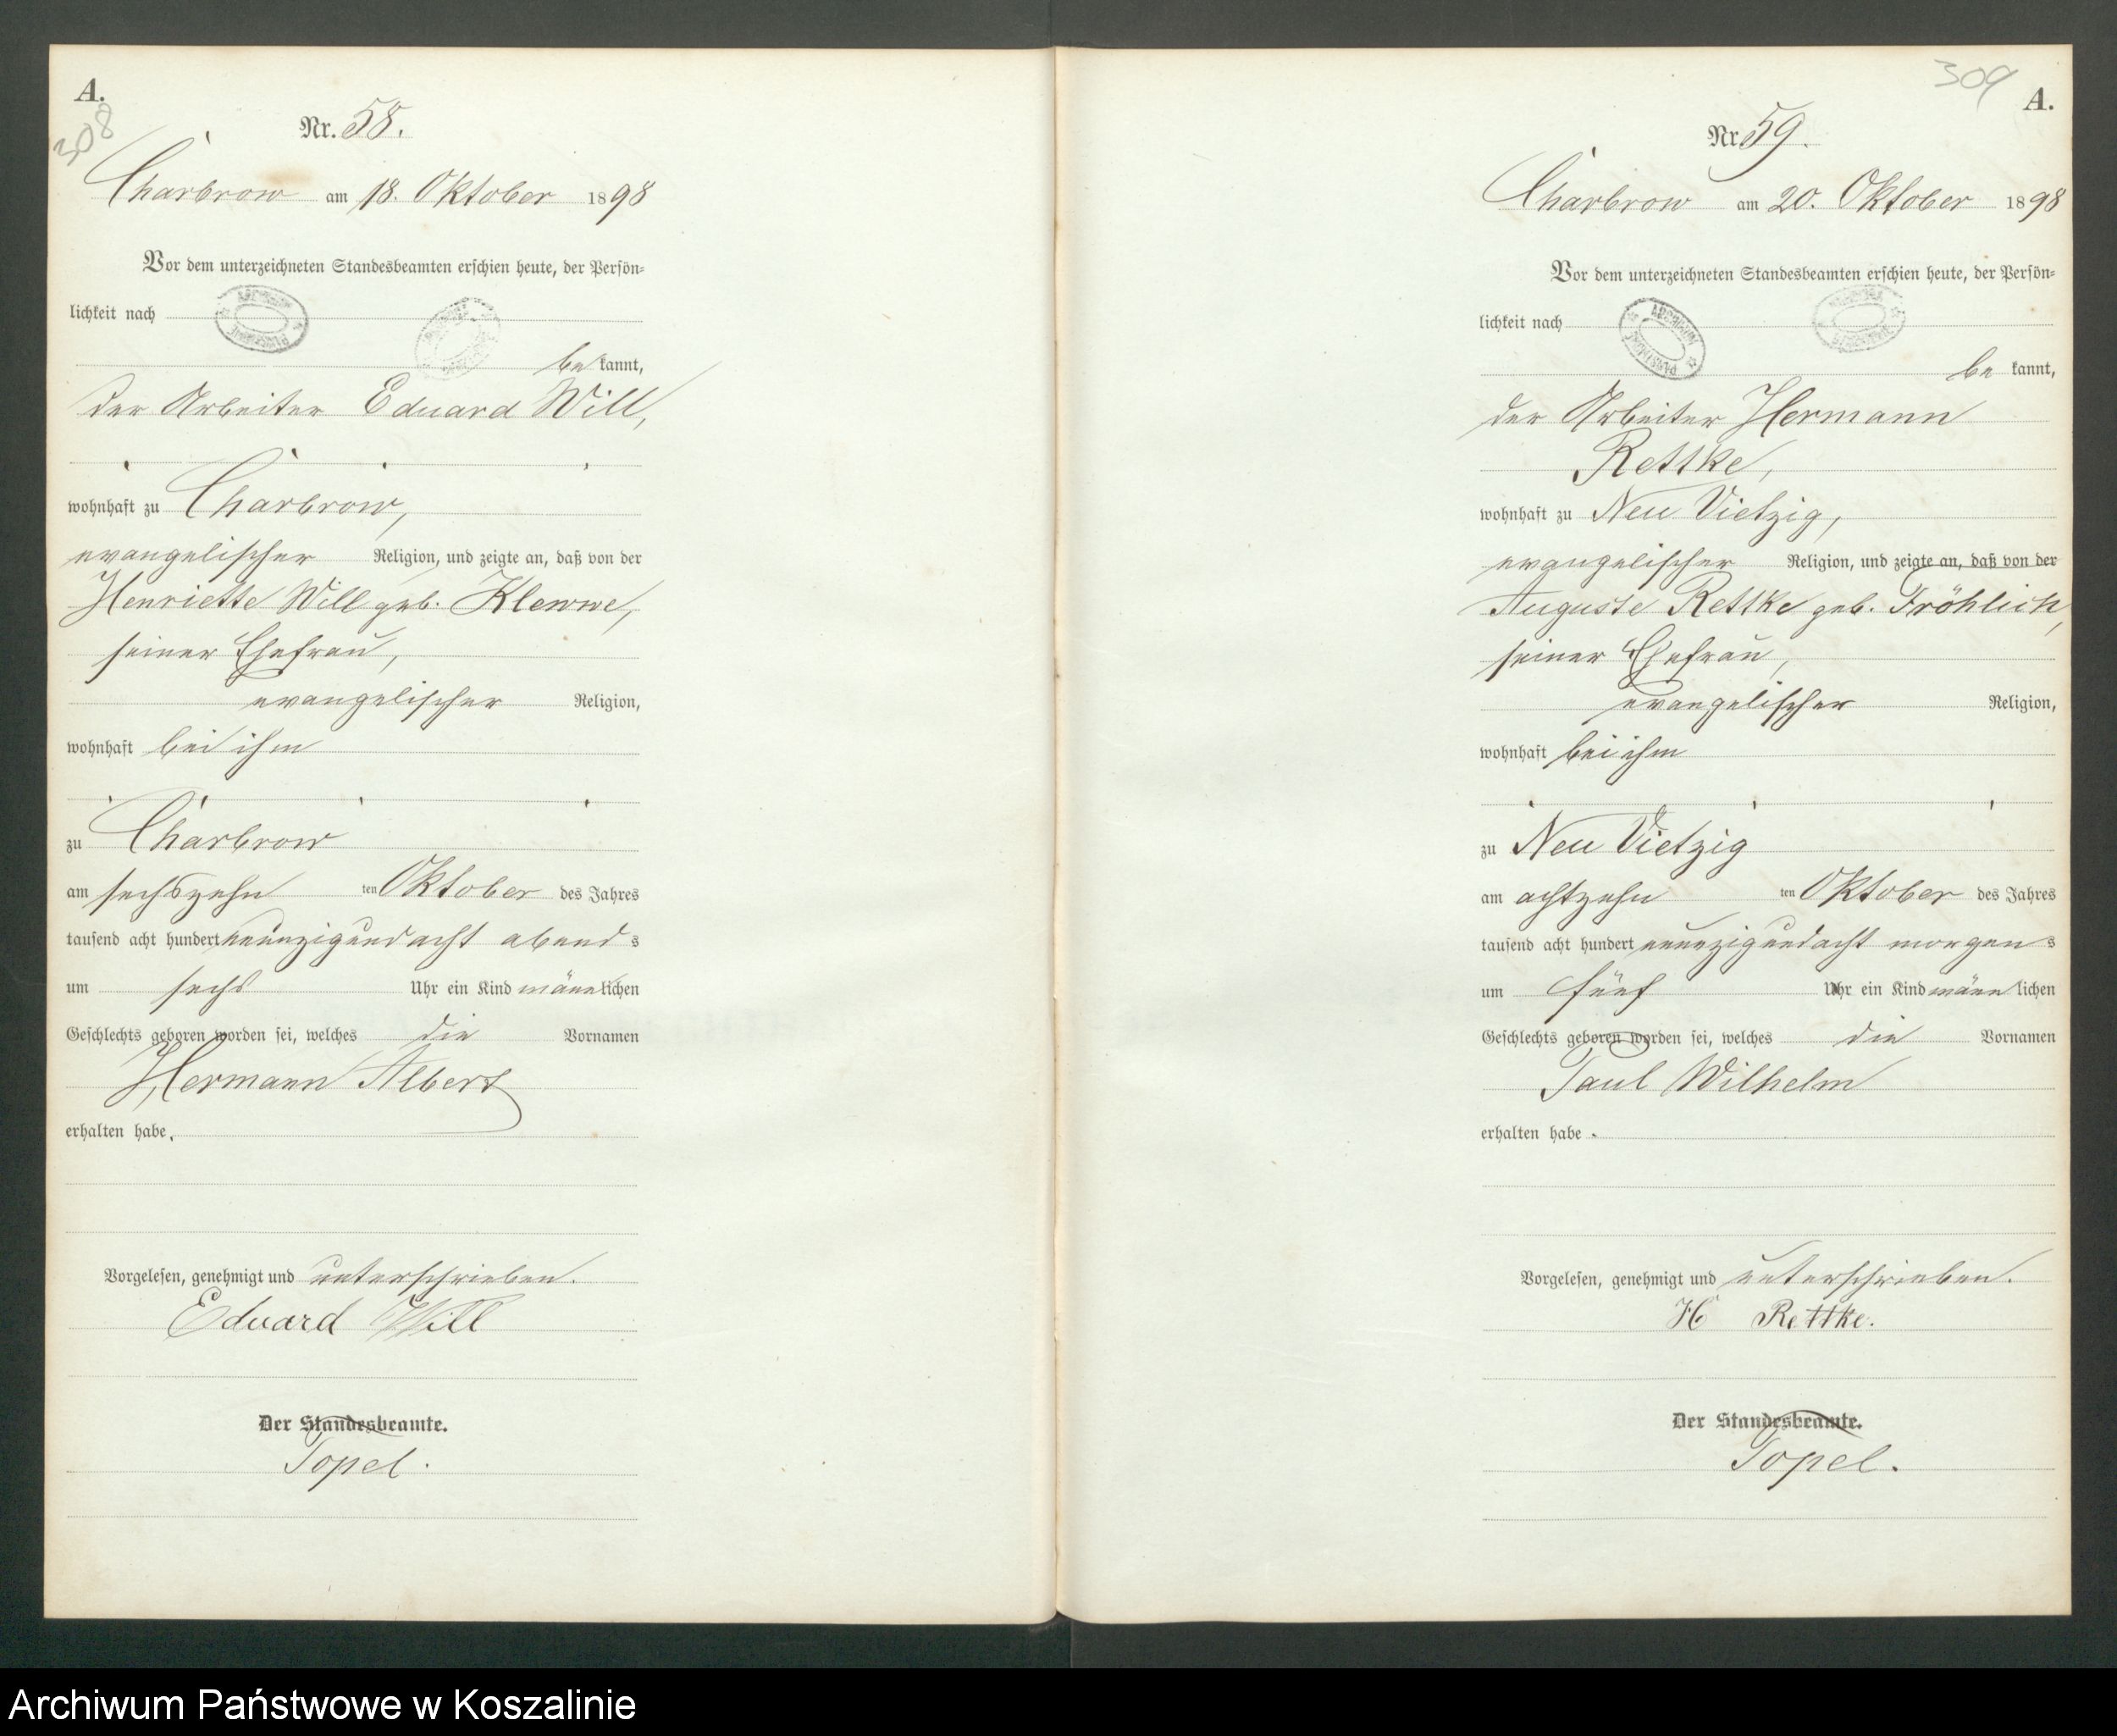 A.
308
Nr. 58.
Charbrow am 18. Oktober 1898
Vor dem unterzeichneten Standesbeamten erschien heute, der Persön=
lichkeit nach
be kannt,
der Arbeiter Eduard Will,
wohnhaft zu Charbrow,
evangelischer Religion, und zeigte an, daß von der
Henriette Will geb. Klewwe,
seiner Ehefrau,
evangelischer Religion,
wohnhaft bei ihm
zu Charbrow
am sechszehn ten Oktober des Jahres
tausend acht hundert neunzigundacht abend s
um sechs Uhr ein Kind männlichen
Geschlechts geboren worden sei, welches die Vornamen
Hermann Albert
erhalten habe.
Vorgelesen, genehmigt und unterschrieben.
Eduard Will
Der Standesbeamte.
Topel.
309
A.
Nr. 59.
Charbrow am 20. Oktober 1898
Vor dem unterzeichneten Standesbeamten erschien heute, der Persön=
lichkeit nach
be kannt,
der Arbeiter Hermann
Rettke,
wohnhaft zu Neu Vietzig,
evangelischer Religion, und zeigte an, daß von der
Auguste Rettke geb. Fröhlich,
seiner Ehefrau,
evangelischer Religion,
wohnhaft bei ihm
zu Neu Vietzig
am achtzehn ten Oktober des Jahres
tausend acht hundert neunzigundacht morgen s
um fünf Uhr ein Kind männ lichen
Geschlechts geboren worden sei, welches die Vornamen
Paul Wilhelm
erhalten habe.
Vorgelesen, genehmigt und unterschrieben.
H Rettke.
Der Standesbeamte.
Topel.
Archiwum Państwowe w Koszalinie